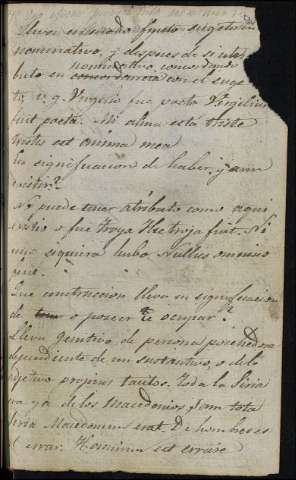 Lleva en modo finito sugeto en
nominativo, y despues de si atri-
buto en nominativo, concordando
con el suge-
to, v. g. Virgilio fue poeta Virgilius
fuit poeta. Mi alma está triste
tristis est anima mea
la significacion de haber, y
existir?
No puede tener atributo como aqui
existio o fue troya Hic troja fuit. Ni
uno siquiera hubo Nullus omnino
Que construccion lleva su significacion
de o poseer te ocupar?
Lleva genitivo de persona poseedora
dependiente de un sustantivo, o del
adjetivo proprius tacitos. toda la Siria
era ya de los Macedonios Jam tota
Siria Macedonum erat. De hombres es
el errar. Hominum est errare